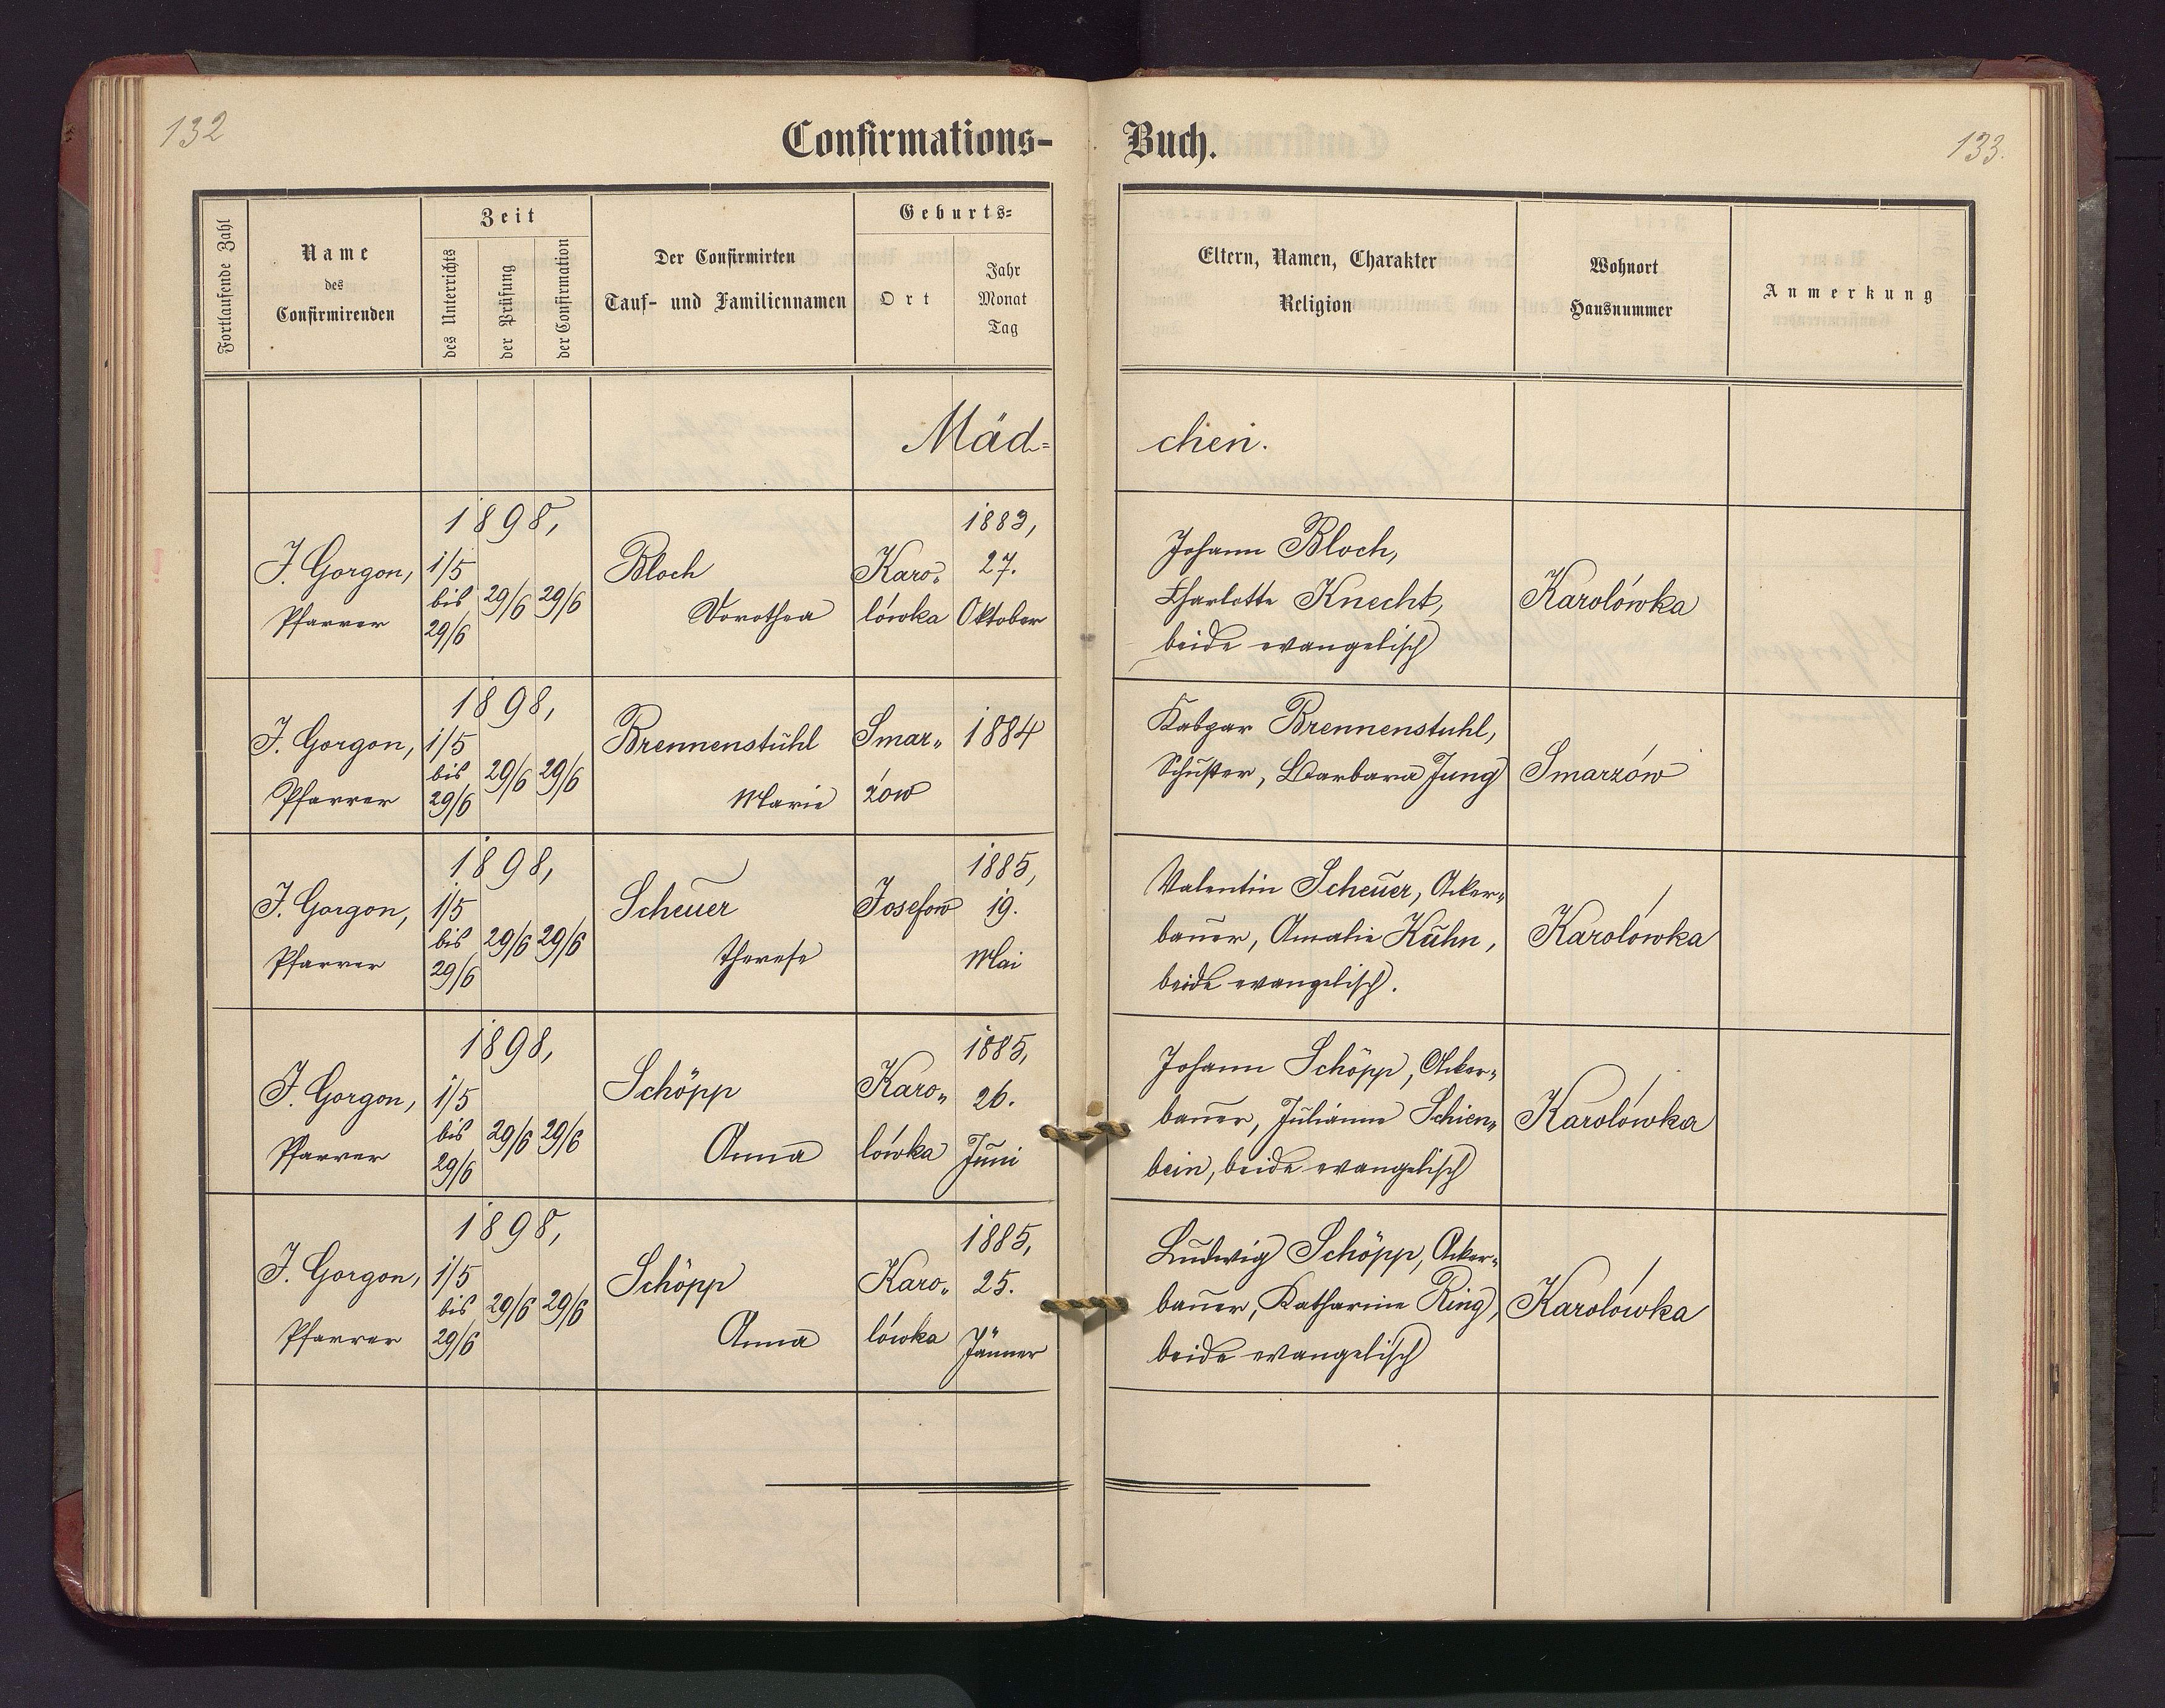 132
133.
Confirmations-
Buch.
Fortlaufende Zahl
Name
des
Confirmirenden
Zeit
des Unterrichts
der Prüfung
der Confirmation
Der Confirmirten
Tauf- und Familiennamen
Geburts-
Ort
Jahr
Monat
Tag
Eltern, Namen, Charakter
Religion
Wohnort
Hausnummer
Anmerkung
Mäd-
chen.
J. Gorgon,
Pfarrer
1898,
1/5
bis
29/6
29/6
29/6
Bloch
Dorothea
Karo-
lówka
1883,
27.
Oktober
Johann Bloch,
Charlotte Knecht,
beide evangelisch
Karolówka
J. Gorgon,
Pfarrer
1898,
1/5
bis
29/6
29/6
29/6
Brennenstuhl
Marie
Smar-
zów
1884
Kaspar Brennenstuhl,
Schuster, Barbara Jung
Smarzów
J. Gorgon,
Pfarrer
1898,
1/5
bis
29/6
29/6
29/6
Scheuer
Therese
Josefow
1885,
19.
Mai
Valentin Scheuer, Acker-
bauer, Amalie Kuhn,
beide evangelisch.
Karolówka
J. Gorgon,
Pfarrer
1898,
1/5
bis
29/6
29/6
29/6
Schöpp
Anna
Karo-
lówka
1885,
26.
Juni
Johann Schöpp, Acker-
bauer, Julianne Schien-
bein, beide evangelisch
Karolówka
J. Gorgon,
Pfarrer
1898,
1/5
bis
29/6
29/6
29/6
Schöpp
Anna
Karo-
lówka
1885,
25.
Jänner
Ludwig Schöpp, Acker-
bauer, Katharine Ring,
beide evangelisch
Karolówka